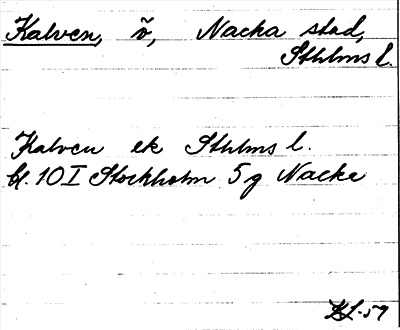 Kalven, ö, Nacka stad,
Sthlms l.
Kalven ek Sthlms l.
bl. 10 I Stockholm 5 g Nacka
KL-59